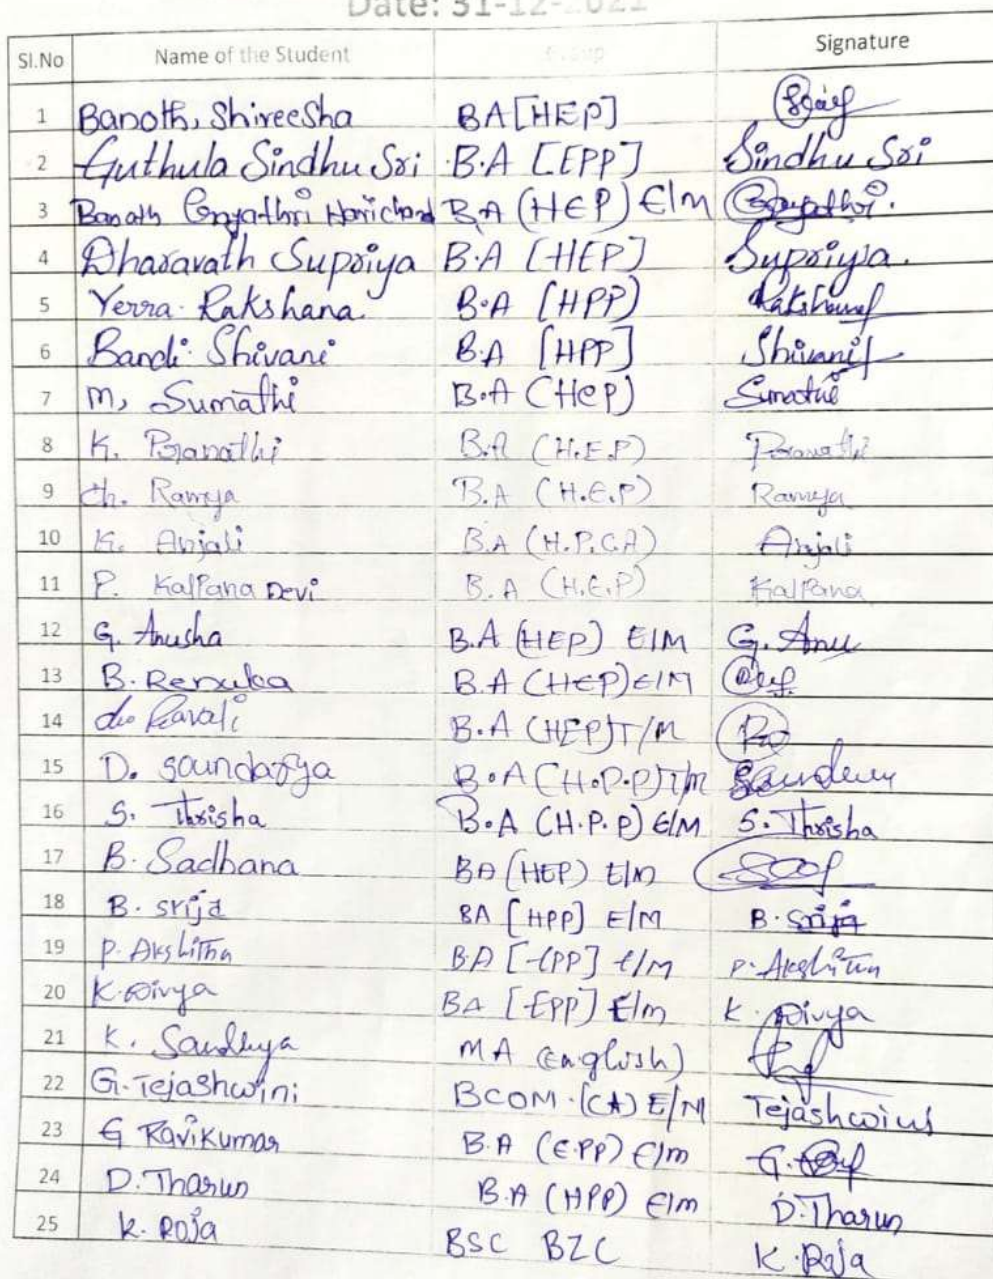 Date: 31-12-2021
Sl.No Name of the Student Group Signature
1 Banoth, Shireesha BA [HEP]
2 Guthula Sindhu Sri B.A [EPP] Sindhu Sri
3 Banoth Gayathri Harichand B.A (HEP) E/M Gayathri.
4 Dharavath Supriya B.A [HEP] Supriya.
5 Yerra Rakshana. B.A [HPP) Rakshana
6 Bandi Shivani B.A [HPP] Shivani
7 M, Sumathi B.A (HeP) Sumathi
8 K. Pranathi B.A (H.E.P) Pranathi
9 Ch. Ramya B.A (H.E.P) Ramya
10 K. Anjali B.A (H.P.CA) Anjali
11 P. Kalpana Devi B.A (H.E.P) Kalpana
12 G. Anusha B.A (HEP) E/M G. Anu
13 B. Renuka B.A (HEP) E/M
14 Kavali B.A (HEP) T/M
15 D. Soundarya B.A (H.P.P) T/M
16 S. Thrisha B.A (H.P.P) E/M S. Thrisha
17 B. Sadhana BA (HEP) E/M
18 B. Srija BA [HPP] E/M B. Srija
19 P. Akshitha BA [EPP] E/M P. Akshitha
20 K. Divya BA [EPP] E/m K. Divya
21 K. Sandhya MA (English)
22 G. Tejashwini BCOM. (CA) E/M Tejashwini
23 G Ravikumar B.A (E.PP) E/m G.
24 D. Tharun B.A (HPP) E/m D. Tharun
25 K. Roja BSC BZC K. Roja